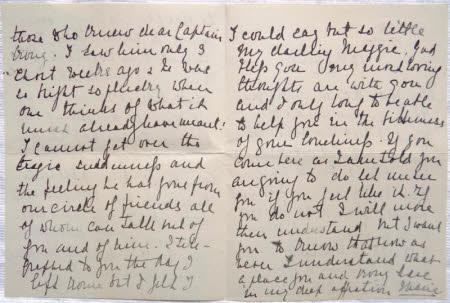 those who know dear Captain
Irony. I saw him only 3
short weeks ago & he was
so bright so plucky when
one thinks of what it
must already have meant.
I cannot get over the
tragic suddenness and
the feeling he has gone from
our circle of friends all
of whom can talk but of
you and of him. I tele-
graphed to you the day I
left Rome but I felt I
I could say but so little
My darling Maggie, God
Help you my most loving
thoughts are with you
and I only long to be able
to help you in the bitterness
of your loneliness. If you
come here as I am told you
are going to do let me see
you if you feel like it. If
you do not I will more
than understand but I want
you to know that now as
never I understand what
a place you and Irony have
in my deep affection